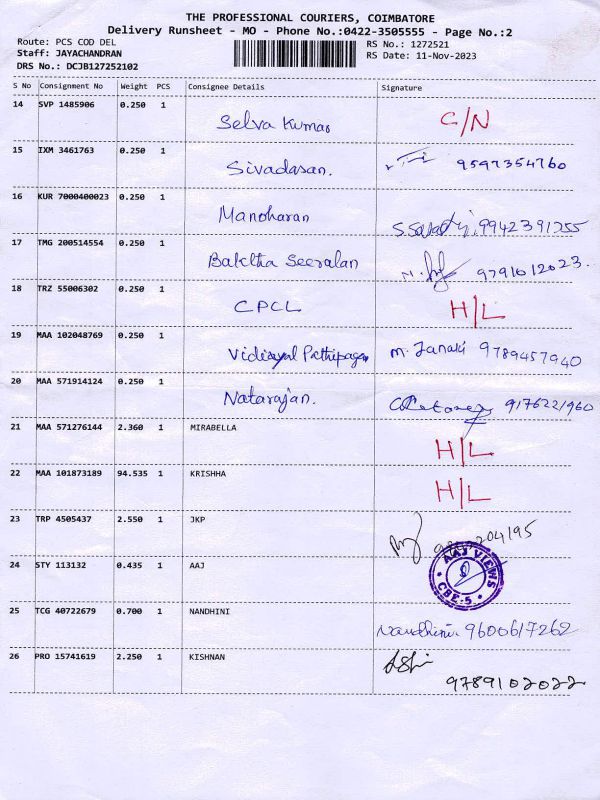 THE PROFESSIONAL COURIERS, COIMBATORE
Delivery Runsheet - MO - Phone No.:0422-3505555 - Page No.:2
Route: PCS COD DEL
Staff: JAYACHANDRAN
DRS No.: DCJB127252102
RS No.: 1272521
RS Date: 11-Nov-2023
S No Consignment No Weight PCS Consignee Details Signature
14 SVP 1485906 0.250 1 Selva Kumar C/N
15 IXM 3461763 0.250 1 Sivadasan. 9597354760
16 KUR 7000400023 0.250 1 Manoharan 9942391255
17 TMG 200514554 0.250 1 Baktha Seeralan 9791012023.
18 TRZ 55006302 0.250 1 CPCL H/L
19 MAA 102048769 0.250 1 Vidiayal Pathipagam M. Janaki 9789457940
20 MAA 571914124 0.250 1 Natarajan. 9176221960
21 MAA 571276144 2.360 1 MIRABELLA H/L
22 MAA 101873189 94.535 1 KRISHHA H/L
23 TRP 4505437 2.550 1 JKP
24 STY 113132 0.435 1 AAJ AAJ VIEWS CBE-5
25 TCG 40722679 0.700 1 NANDHINI Nandhini. 9600617262
26 PRO 15741619 2.250 1 KISHNAN 9789102022